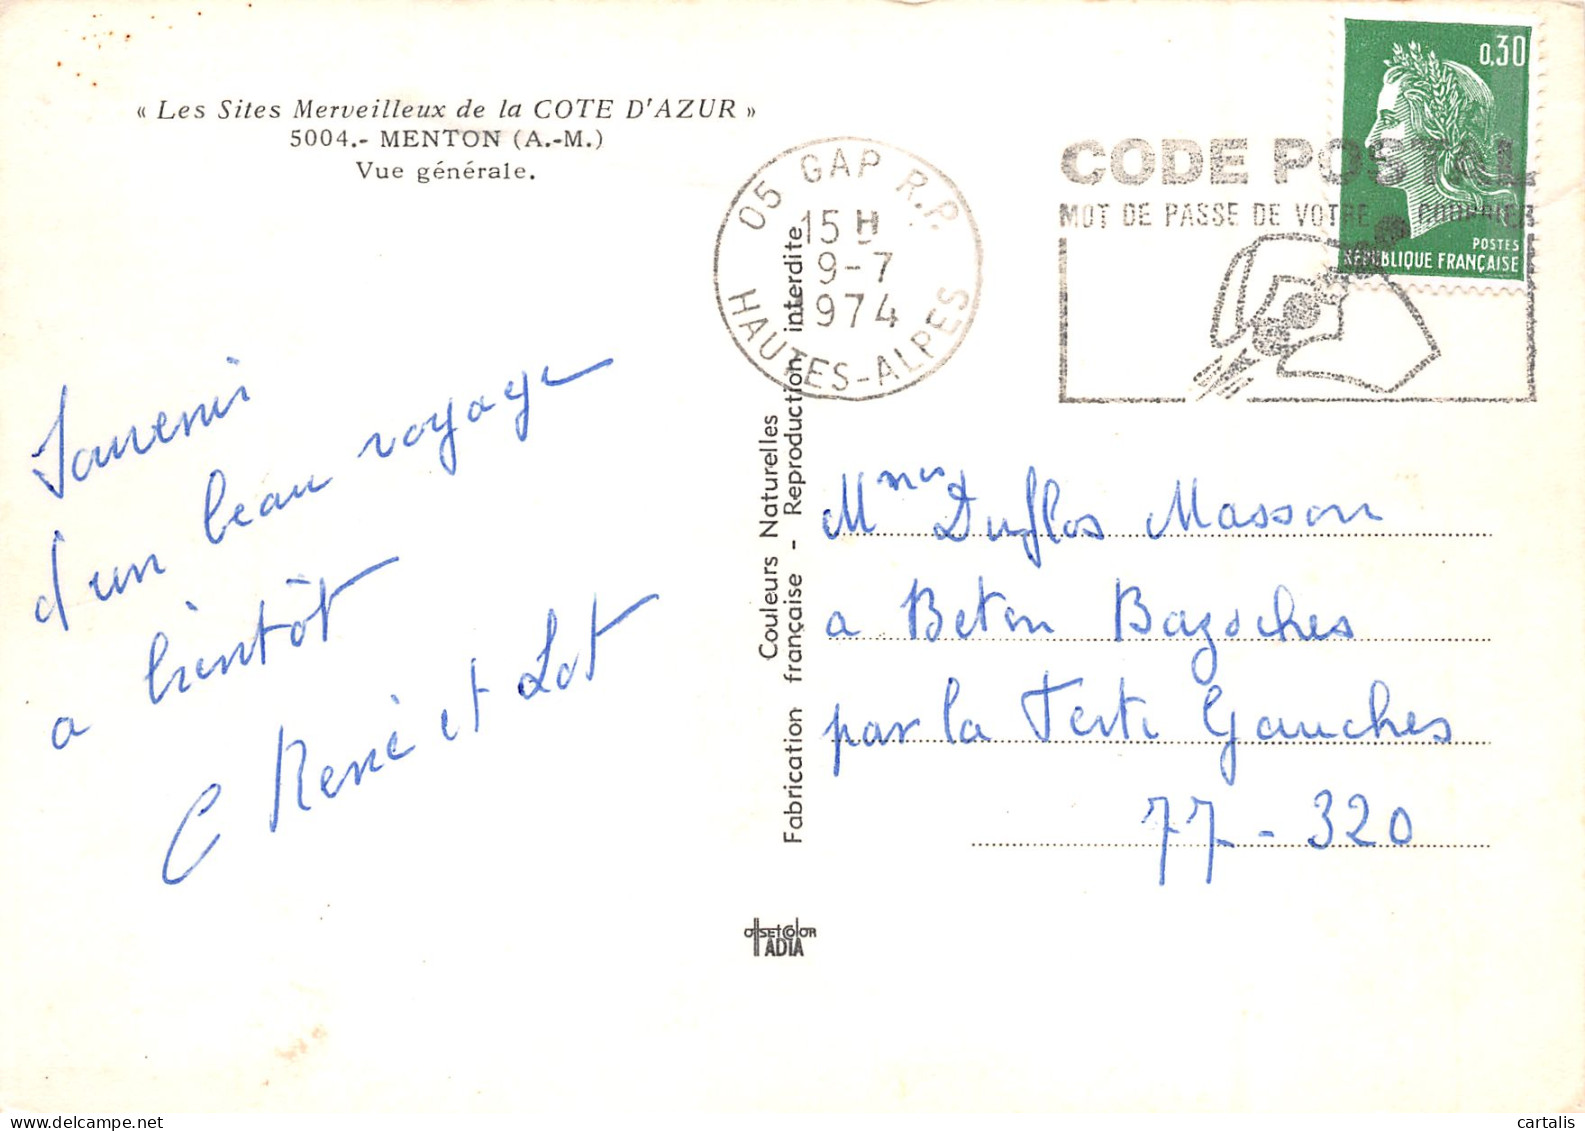 « Les Sites Merveilleux de la COTE D'AZUR »
5004.- MENTON (A.-M.)
Vue générale.
05 GAP R.P.
15 H
9-7
1974
HAUTES-ALPES
CODE POSTAL
MOT DE PASSE DE VOTRE COURRIER
0,30
POSTES
RÉPUBLIQUE FRANÇAISE
Souvenir
d'un beau voyage
a bientôt
René et Lot
Couleurs Naturelles
Fabrication française - Reproduction interdite
Mmes Duflos Masson
a Beton Bazoches
par la Ferte Gauches
77-320
OFFSETCOLOR
ADIA
cartalis